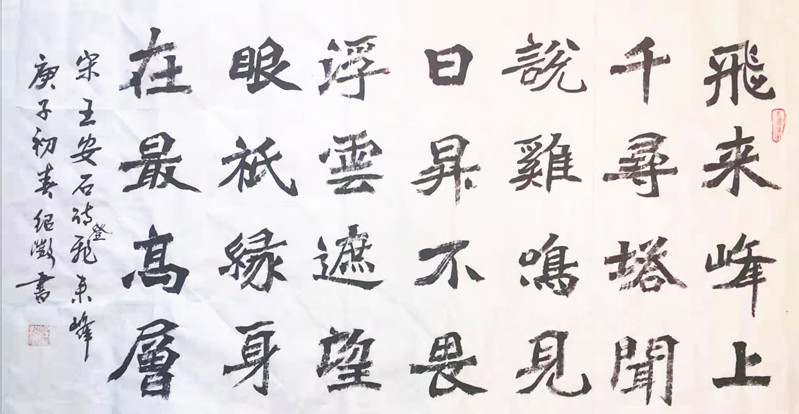 飛来峰上
千尋塔聞
說雞鳴見
日昇不畏
浮雲遮望
眼祇縁身
在最高層
宋王安石詩登飛来峰
庚子初春書